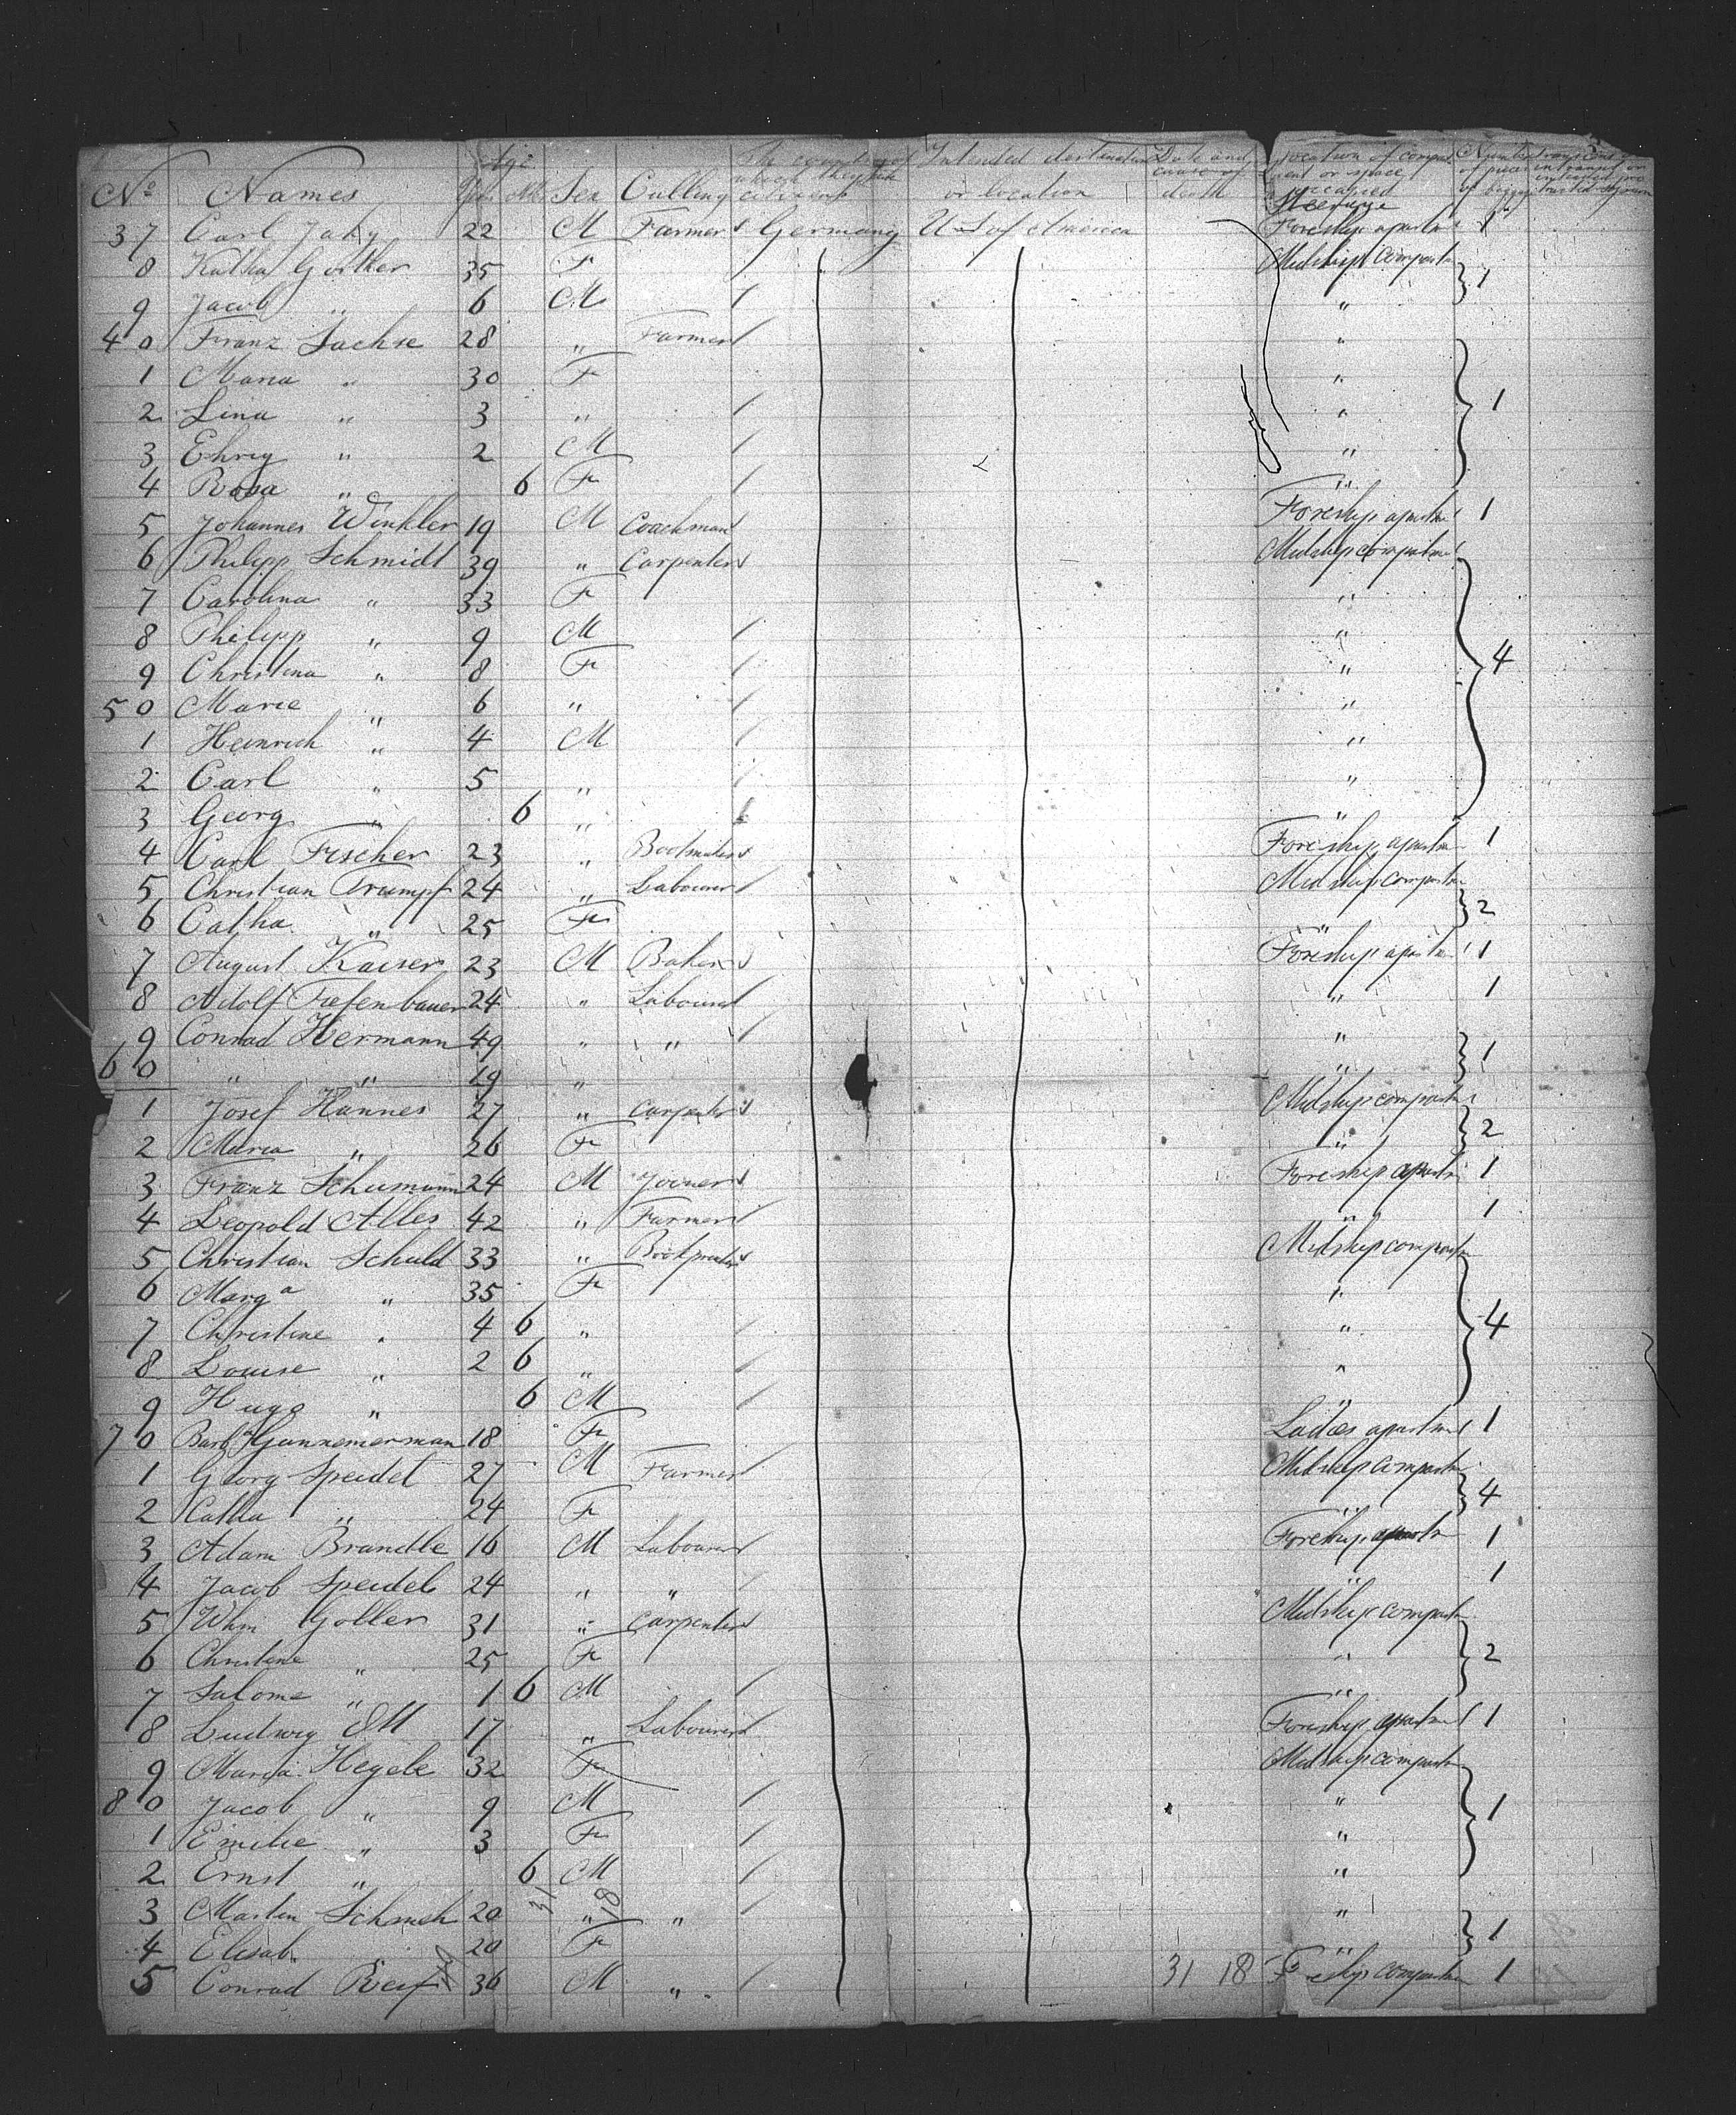 Age The country of which they are citizens Intended destination or location Date and cause of death Location of compartment or space occupied Number of pieces of baggage
No Names Years Mo Sex Calling
Steerage
37 Carl Jaky 22 M Farmer Germany U S of America Foreship apartm 1
8 Katha Gorther 35 F Midship compartm 1
9 Jacob " 6 M "
40 Franz Sachse 28 " Farmer "
1 Maria " 30 F " 1
2 Lina " 3 " "
3 Ehrig " 2 M "
4 Rosa " 6 F "
5 Johannes Winkler 19 M Coachman Foreship apartm 1
6 Philipp Schmidt 39 " Carpenter Midship compartm
7 Carolina " 33 F "
8 Philipp " 9 M "
9 Christina " 8 F " 4
50 Marie " 6 " "
1 Heinrich " 4 M "
2 Carl " 5 " "
3 Georg " 6 " "
4 Carl Fischer 23 " Bootmaker Foreship apartm 1
5 Christian Trumpf 24 " Labourer Midship compartm
6 Catha " 25 F " 2
7 August Kaiser 23 M Baker Foreship apartm 1
8 Adolf Tiefenbauer 24 " Labourer " 1
9 Conrad Hermann 49 " " "
60 " " 19 " " 1
1 Josef Hannes 27 " Carpenter Midship compartm
2 Maria " 26 F " 2
3 Franz Schumann 24 M Joiner Foreship apartm 1
4 Leopold Alles 42 " Farmer " " 1
5 Christian Schuld 33 " Bookprinter Midship compartm
6 Marga " 35 F "
7 Christine " 4 6 " " 4
8 Louise " 2 6 " "
9 Hugo " 6 M "
70 Barba Gannemerman 18 F Ladies apartment 1
1 Georg Speidel 27 M Farmer Midship compartm
2 Catha " 24 F " 4
3 Adam Brandle 16 M Labourer Foreship apartm 1
4 Jacob Speidel 24 " " " 1
5 Whm Goller 31 " Carpenter Midship compartm
6 Christine " 25 F " 2
7 Salome " 1 6 M "
8 Ludwig Ott 17 " Labourer Foreship apartm 1
9 Maria Hegele 32 F Midship compartm
80 Jacob " 9 M " 1
1 Emilie " 3 F "
2 Ernst " 6 M "
31 18
3 Martin Schmeh 20 " " "
4 Elisab. 20 F " 1
5 Conrad Reif 36 M " 31 18 Foreship compartm 1